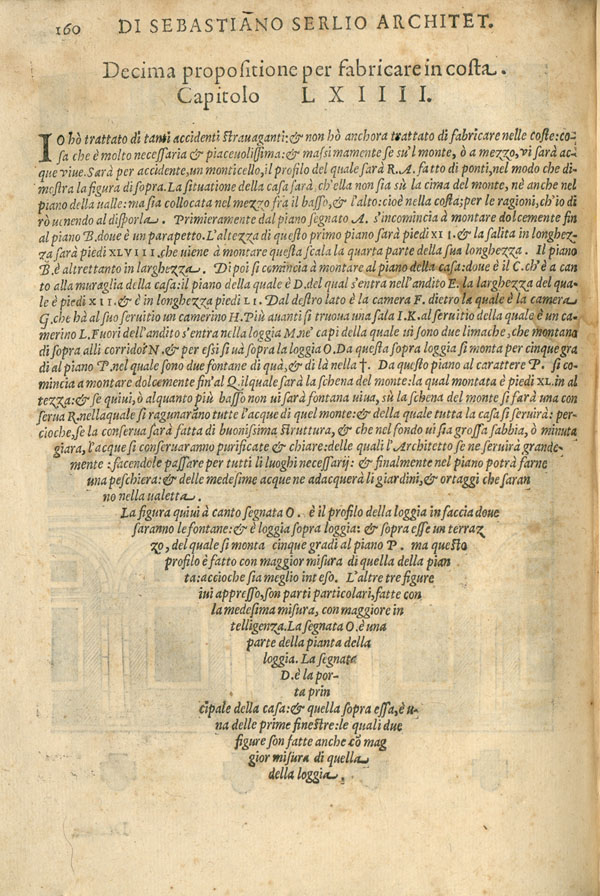 160 DI SEBASTIANO SERLIO ARCHITET.
Decima propositione per fabricare in costa.
Capitolo LXIIII.
IO hò trattato di tanti accidenti strauaganti:& non hò anchora trattato di fabricare nelle coste:co-
sa che è molto necessaria & piaceuolissima:& massimamente se su'l monte, ò a mezzo, vi sarà ac-
que viue. Sarà per accidente, un monticello, il profilo del quale sarà R.A. fatto di ponti, nel modo che di-
mostra la figura di sopra. La situatione della casa sarà, ch'ella non sia sù la cima del monte, nè anche nel
piano della ualle: ma sia collocata nel mezzo fra il basso, & l'alto: cioè nella costa; per le ragioni, ch'io di-
rò uenendo al disporla. Primieramente dal piano segnato A. s'incomincia à montare dolcemente fin
al piano B. doue è un parapetto. L'altezza di questo primo piano sarà piedi XII. & la salita in longhez-
za sarà piedi XLVIII. che uiene à montare questa scala la quarta parte della sua longhezza. Il piano
B. è altrettanto in larghezza. Di poi si comincia à montare al piano della casa: doue è il C. ch'è a can-
to alla muraglia della casa: il piano della quale è D. del qual s'entra nell'andito E. la larghezza del qua-
le è piedi XII. & è in longhezza piedi LI. Dal destro lato è la camera F. dietro la quale è la camera
G, che hà al suo seruitio un camerino H. Più auanti si truoua una sala I.K. al seruitio della quale è un ca-
merino L. Fuori dell'andito s'entra nella loggia M. ne' capi della quale ui sono due limache, che montano
di sopra alli corridor N. & per essi si uà sopra la loggia O. Da questa sopra loggia si monta per cinque gra
di al piano P. nel quale sono due fontane di quà, & di là nella †. Da questo piano al carattere P. si co-
mincia a montare dolcemente fin'al Q. il quale sarà la schena del monte: la qual montata è piedi XL. in al
tezza: & se quiui, ò alquanto più basso non ui sarà fontana uiua, sù la schena del monte si farà una con
serua R. nella quale si ragunaranno tutte l'acque di quel monte: & della quale tutta la casa si seruirà: per-
cioche, se la conserua sarà fatta di buonissima struttura, & che nel fondo ui sia grossa sabbia, ò minuta
giara, l'acque si conseruaranno purificate & chiare: delle quali l'Architetto se ne seruirà grande-
mente: facendole passare per tutti li luoghi necessarij: & finalmente nel piano potrà farne
una peschiera: & delle medesime acque ne adacquerà li giardini, & ortaggi che saran
no nella ualetta.
La figura quiui à canto segnata O. è il profilo della loggia in faccia doue
saranno le fontane: & è loggia sopra loggia: & sopra esse un terraz
zo, del quale si monta cinque gradi al piano P. ma questo
profilo è fatto con maggior misura di quella della pian
ta: accioche sia meglio inteso. L'altre tre figure
iui appresso, son parti particolari, fatte con
la medesima misura, con maggiore in
telligenza. La segnata O. è una
parte della pianta della
loggia. La segnata
D. è la por-
ta prin
cipale della casa: & quella sopra essa, è u-
na delle prime finestre: le quali due
figure son fatte anche cō mag
gior misura di quella
della loggia.